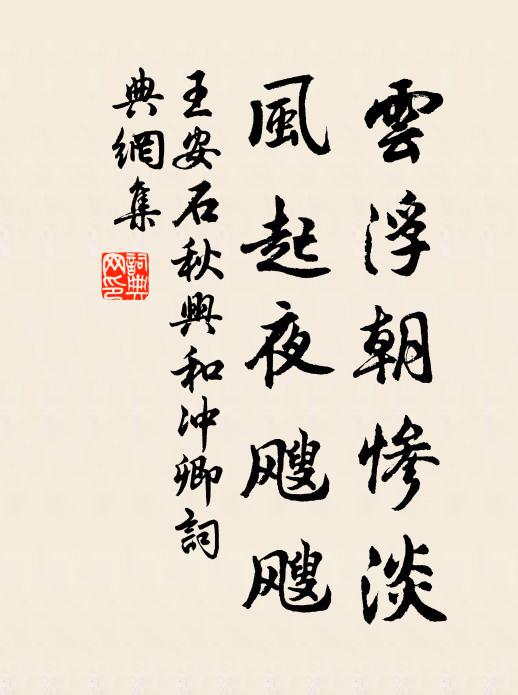 雲浮朝慘淡
風起夜颼颼
王安石秋興和沖卿詞
典網集
詞典
网印